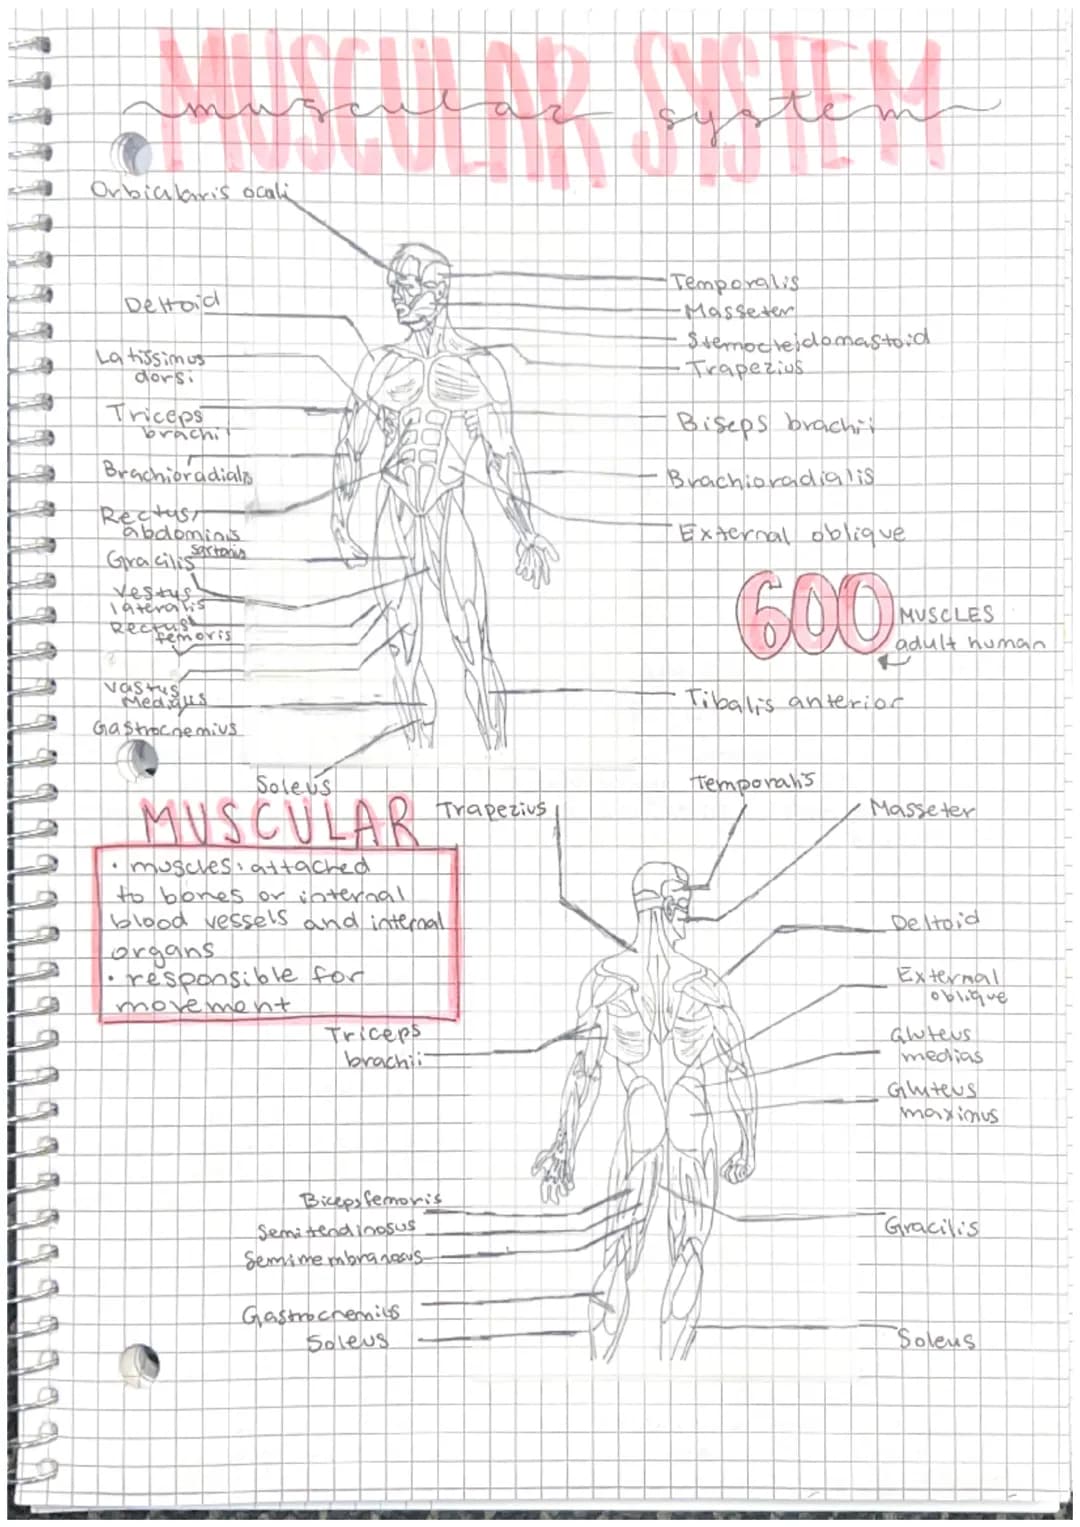 MUSCULAR SYSTEM
muscular system
Orbicularis ocali
Deltoid
Latissimus
dorsi
Triceps
brachii
Brachioradialis
Rectus
abdominis
Sartorius
Gracilis
Vestus
lateralis
Rectus
femoris
Vastus
Medialis
Gastrocnemius
Soleus
Temporalis
Masseter
Sternocleidomastoid
Trapezius
Biseps brachii
Brachioradialis
External oblique
600 MUSCLES
adult human
Tibalis anterior
MUSCULAR
• muscles: attached
to bones or internal
blood vessels and internal
organs
• responsible for
movement
Trapezius
Temporalis
Masseter
Deltoid
External
oblique
Gluteus
medias
Gluteus
maximus
Triceps
brachii
Biceps femoris
Semitendinosus
Semimembranosus
Gastrocnemius
Soleus
Gracilis
Soleus